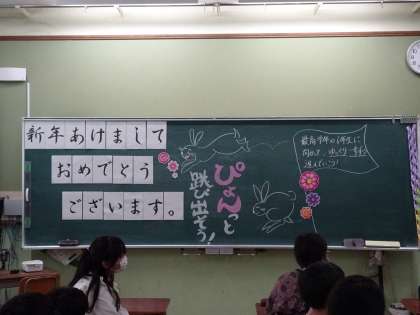 新年あけまして
おめでとう
ございます。
ぴょんっと
跳び出そう!
最高学年の6年生に
向かって、
進んでいこう!